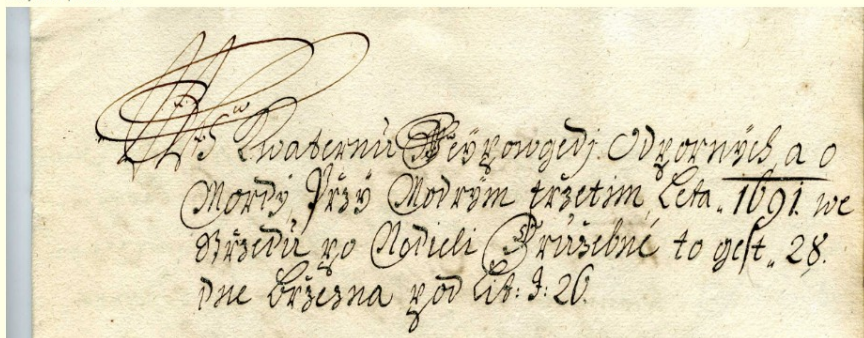 Wÿpis z Kwaternu Weÿpowgedj Odporných a o
Mordý Przÿ Modrým trzetim Leta „ 1691. we
Strzedú po Nedieli Družebné to gest „ 28.
dne Brzezna pod Lit: J: 26.